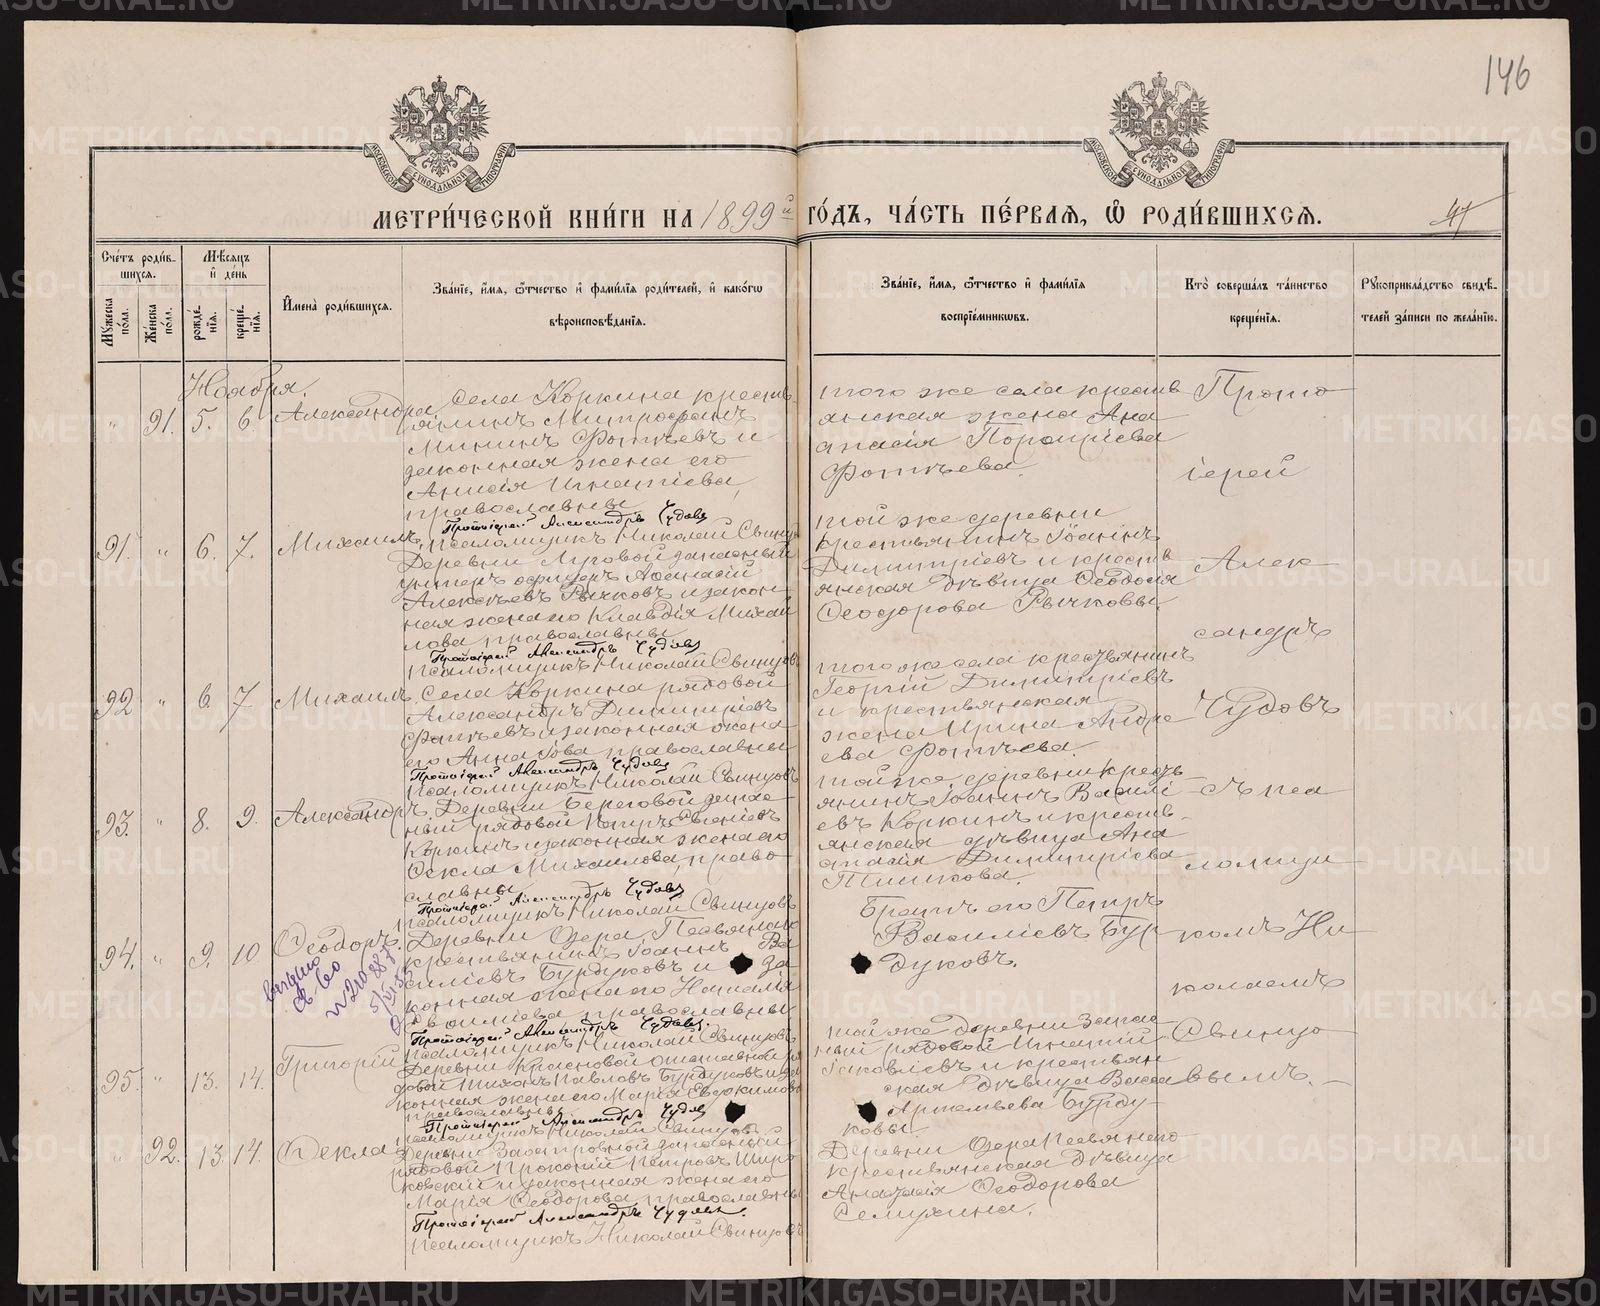 146
МЕТРИ́ЧЕСКОЙ КНИ́ГИ НА 1899й ГО́ДЪ, ЧА́СТЬ ПЕ́РВАЯ, Ѡ РОДИ́ВШИХСЯ.
47
Сче́тъ роди́в-
шихся.
Мꙋжеска по́ла.
Же́нска по́ла.
Мѣ́сяцъ
и де́нь
рожде́нїя.
креще́нїя.
Имена̀ роди́вшихся.
Зва́нїе, и́мя, ѻ́тчество и фами́лїя роди́телей, и како́гѡ
вѣроисповѣ́данїя.
Зва́нїе, и́мя, ѻ́тчество и фами́лїя
воспрїе́мникѡвъ.
Кто̀ соверша́лъ та́инство
креще́нїя.
Рꙋкоприкла́дство свидѣ́-
телей за́писи по жела́нїю.
Ноября.
" 91. 5. 6. Александра
села Коркина кресть
янинъ Митрофанъ
Мининъ Фотѣевъ и
законная жена его
Анисія Игнатіева,
православны
Протоіерей Александръ Чудовъ
псаломщикъ Николай Свинцовъ
того же села кресть
янская жена Ана
стасія Порфиріева
Фотѣева.
91. " 6. 7. Михаилъ
Деревни Луговой запасный
унтеръ офицеръ Аѳанасій
Алексѣевъ Рычковъ и закон
ная жена его Клавдія Михаи
лова православны
Протоіерей Александръ Чудовъ
псаломщикъ Николай Свинцовъ
той же деревни
крестьянинъ Іоаннъ
Димитріевъ и кресть
янская дѣвица Ѳеодосія
Ѳеодорова Рычковы.
92 " 6. 7. Михаилъ
Села Коркина рядовой
Александръ Димитріевъ
Фотѣевъ и законная жена
его Анна Іова православны
Протоіерей Александръ Чудовъ
псаломщикъ Николай Свинцовъ
того же села крестьянинъ
Георгій Димитріевъ
и крестьянская
жена Ирина Андре
ева Фотѣева.
93. " 8. 9. Александръ
Деревни Береговой запас
ный рядовой Петръ Евгеніевъ
Коркинъ и законная жена его
Ѳекла Михаилова, право
славны
Протоіерей Александръ Чудовъ
псаломщикъ Николай Свинцовъ
той же деревни кресть
янинъ Іоаннъ Василі
евъ Коркинъ и кресть
янская дѣвица Ана
стасія Димитріева
94. " 9. 10 Ѳеодоръ.
Деревни Озера Песьянаго
крестьянинъ Іоаннъ Ва
силіевъ Бурдуковъ и за
конная жена его Наталія
православны
Протоіерей Александръ Чудовъ.
псаломщикъ Николай Свинцовъ
Братъ его Петръ
Василіевъ Бур
дуковъ.
95. " 13. 14. Григорій
Деревни Красновой отставной ря
довой Тихонъ Павловъ Бурдуковъ и за
конная жена его Марія Евдокимова
православны
Протоіерей Александръ Чудовъ
псаломщикъ Николай Свинцовъ
той же деревни запас
ный рядовой Игнатій
Іаковлевъ и крестьян
ская дѣвица Васса
Артемьева Бурду
ковы
" 92. 13. 14. Ѳекла
рядовой Прокопій Петровъ Широ
ковскій и законная жена его
Марія Ѳеодорова православны
Протоіерей Александръ Чудовъ.
псаломщикъ Николай Свинцовъ
Деревни Озера Песьянаго
крестьянская дѣвица
Анастасія Ѳеодорова
Семухина.
Прото
іерей
Алек
сандръ
Чудовъ
съ пса
ломщи
комъ Ни
колаемъ
Свинцо
вымъ.